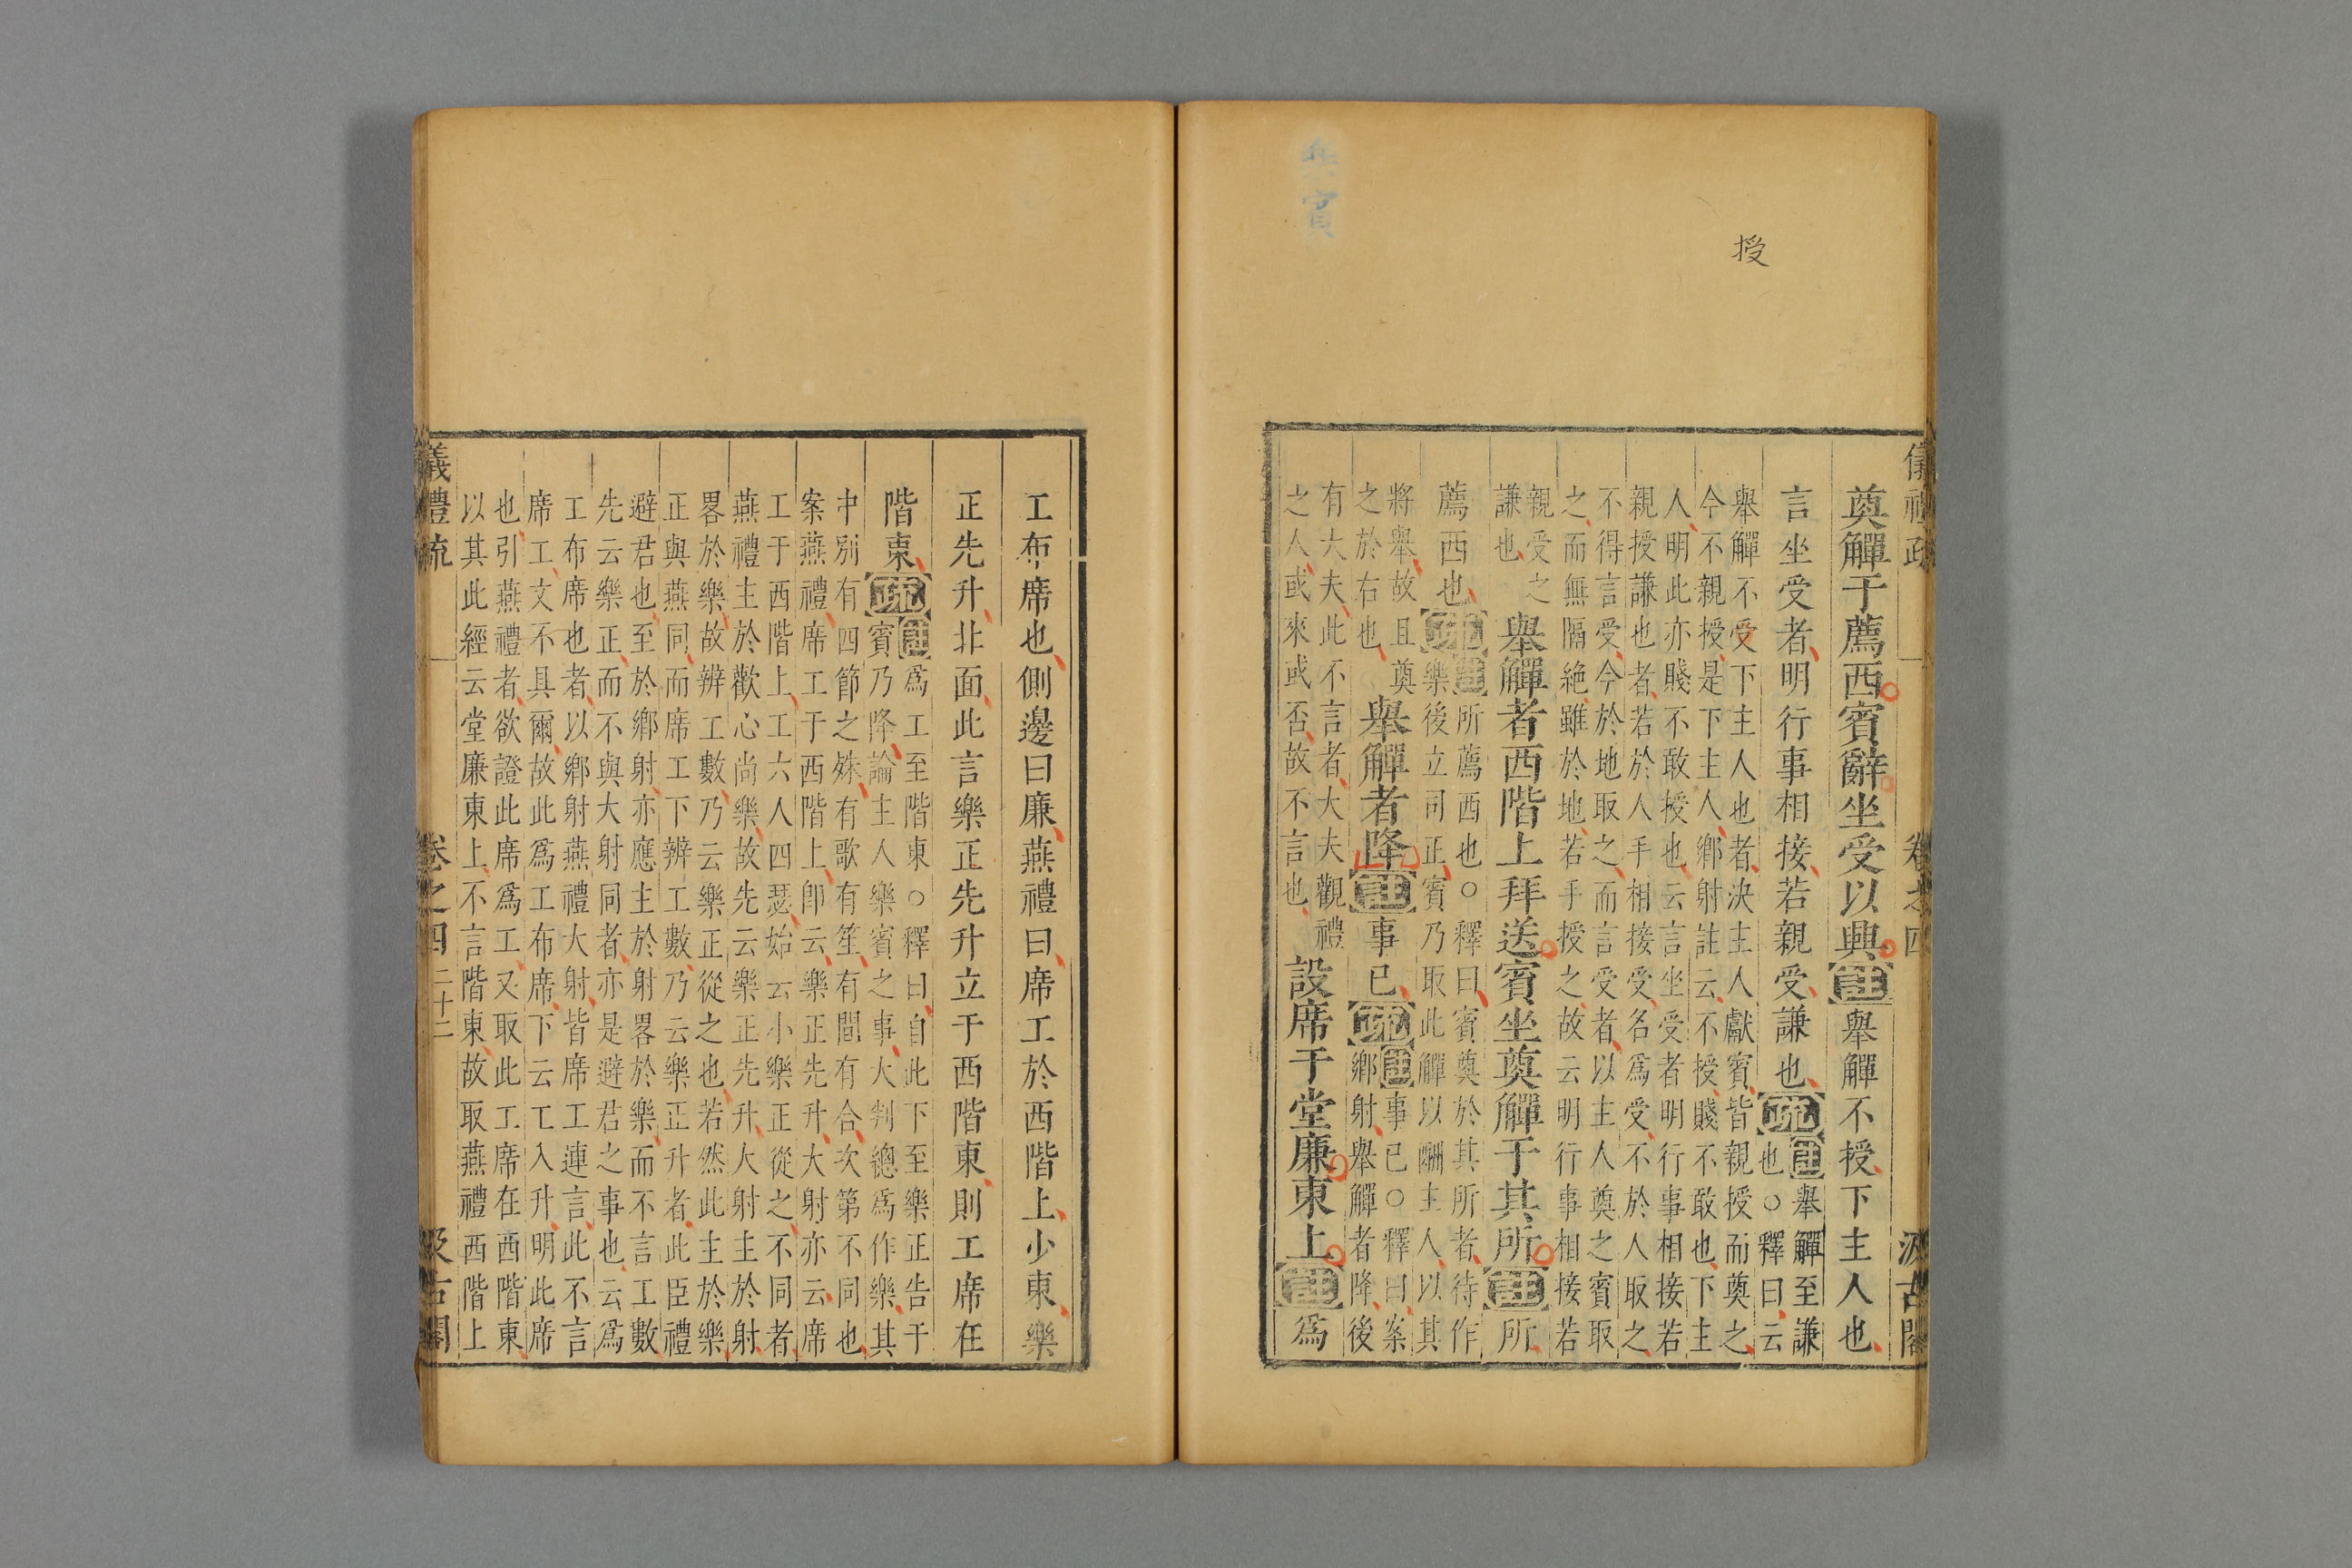 授
樂賓
儀禮疏 卷之四 汲古閣
奠觶于薦西賓辭坐受以興註舉觶不授下主人也
言坐受者明行事相接若親受謙也疏註舉觶至謙
也○釋曰云
舉觶不受下主人也者决主人獻賓皆親授而奠之
今不親授是下主人鄉射註云不授賤不敢也下主
人明此亦賤不敢授也云言坐受者明行事相接若
親授謙也者若於人手相接受名為受不於人取之
不得言受今於地取之而言受者以主人奠之賓取
之而無隔絶雖於地若手授之故云明行事相接若
親受之
謙也 舉觶者西階上拜送賓坐奠觶于其所註所
薦西也疏註所薦西也○釋曰賓奠於其所者待作
樂後立司正賓乃取此觶以酬主人以其
將舉故且奠
之於右也 舉觶者降註事已疏註事已○釋曰案
鄉射舉觶者降後
有大夫此不言者大夫觀禮
之人或來或否故不言也 設席于堂廉東上註為
工布席也側邊曰廉燕禮曰席工於西階上少東樂
正先升北面此言樂正先升立于西階東則工席在
階東疏註為工至階東○釋曰自此下至樂正告于
賓乃降論主人樂賓之事大判總為作樂其
中別有四節之殊有歌有笙有間有合次第不同也
案燕禮席工于西階上卽云樂正先升大射亦云席
工于西階上工六人四瑟始云小樂正從之不同者
燕禮主於歡心尚樂故先云樂正先升大射主於射
畧於樂故辨工數乃云樂正從之也若然此主於樂
正與燕同而席工下辨工數乃云樂正升者此臣禮
避君也至於鄉射亦應主於射畧於樂而不言工數
先云樂正而不與大射同者亦是避君之事也云為
工布席也者以鄉射燕禮大射皆席工連言此不言
席工文不具爾故此為工布席下云工入升明此席
也引燕禮者欲證此席為工又取此工席在西階東
以其此經云堂廉東上不言階東故取燕禮西階上
儀禮疏 卷之四 二十二 汲古閣